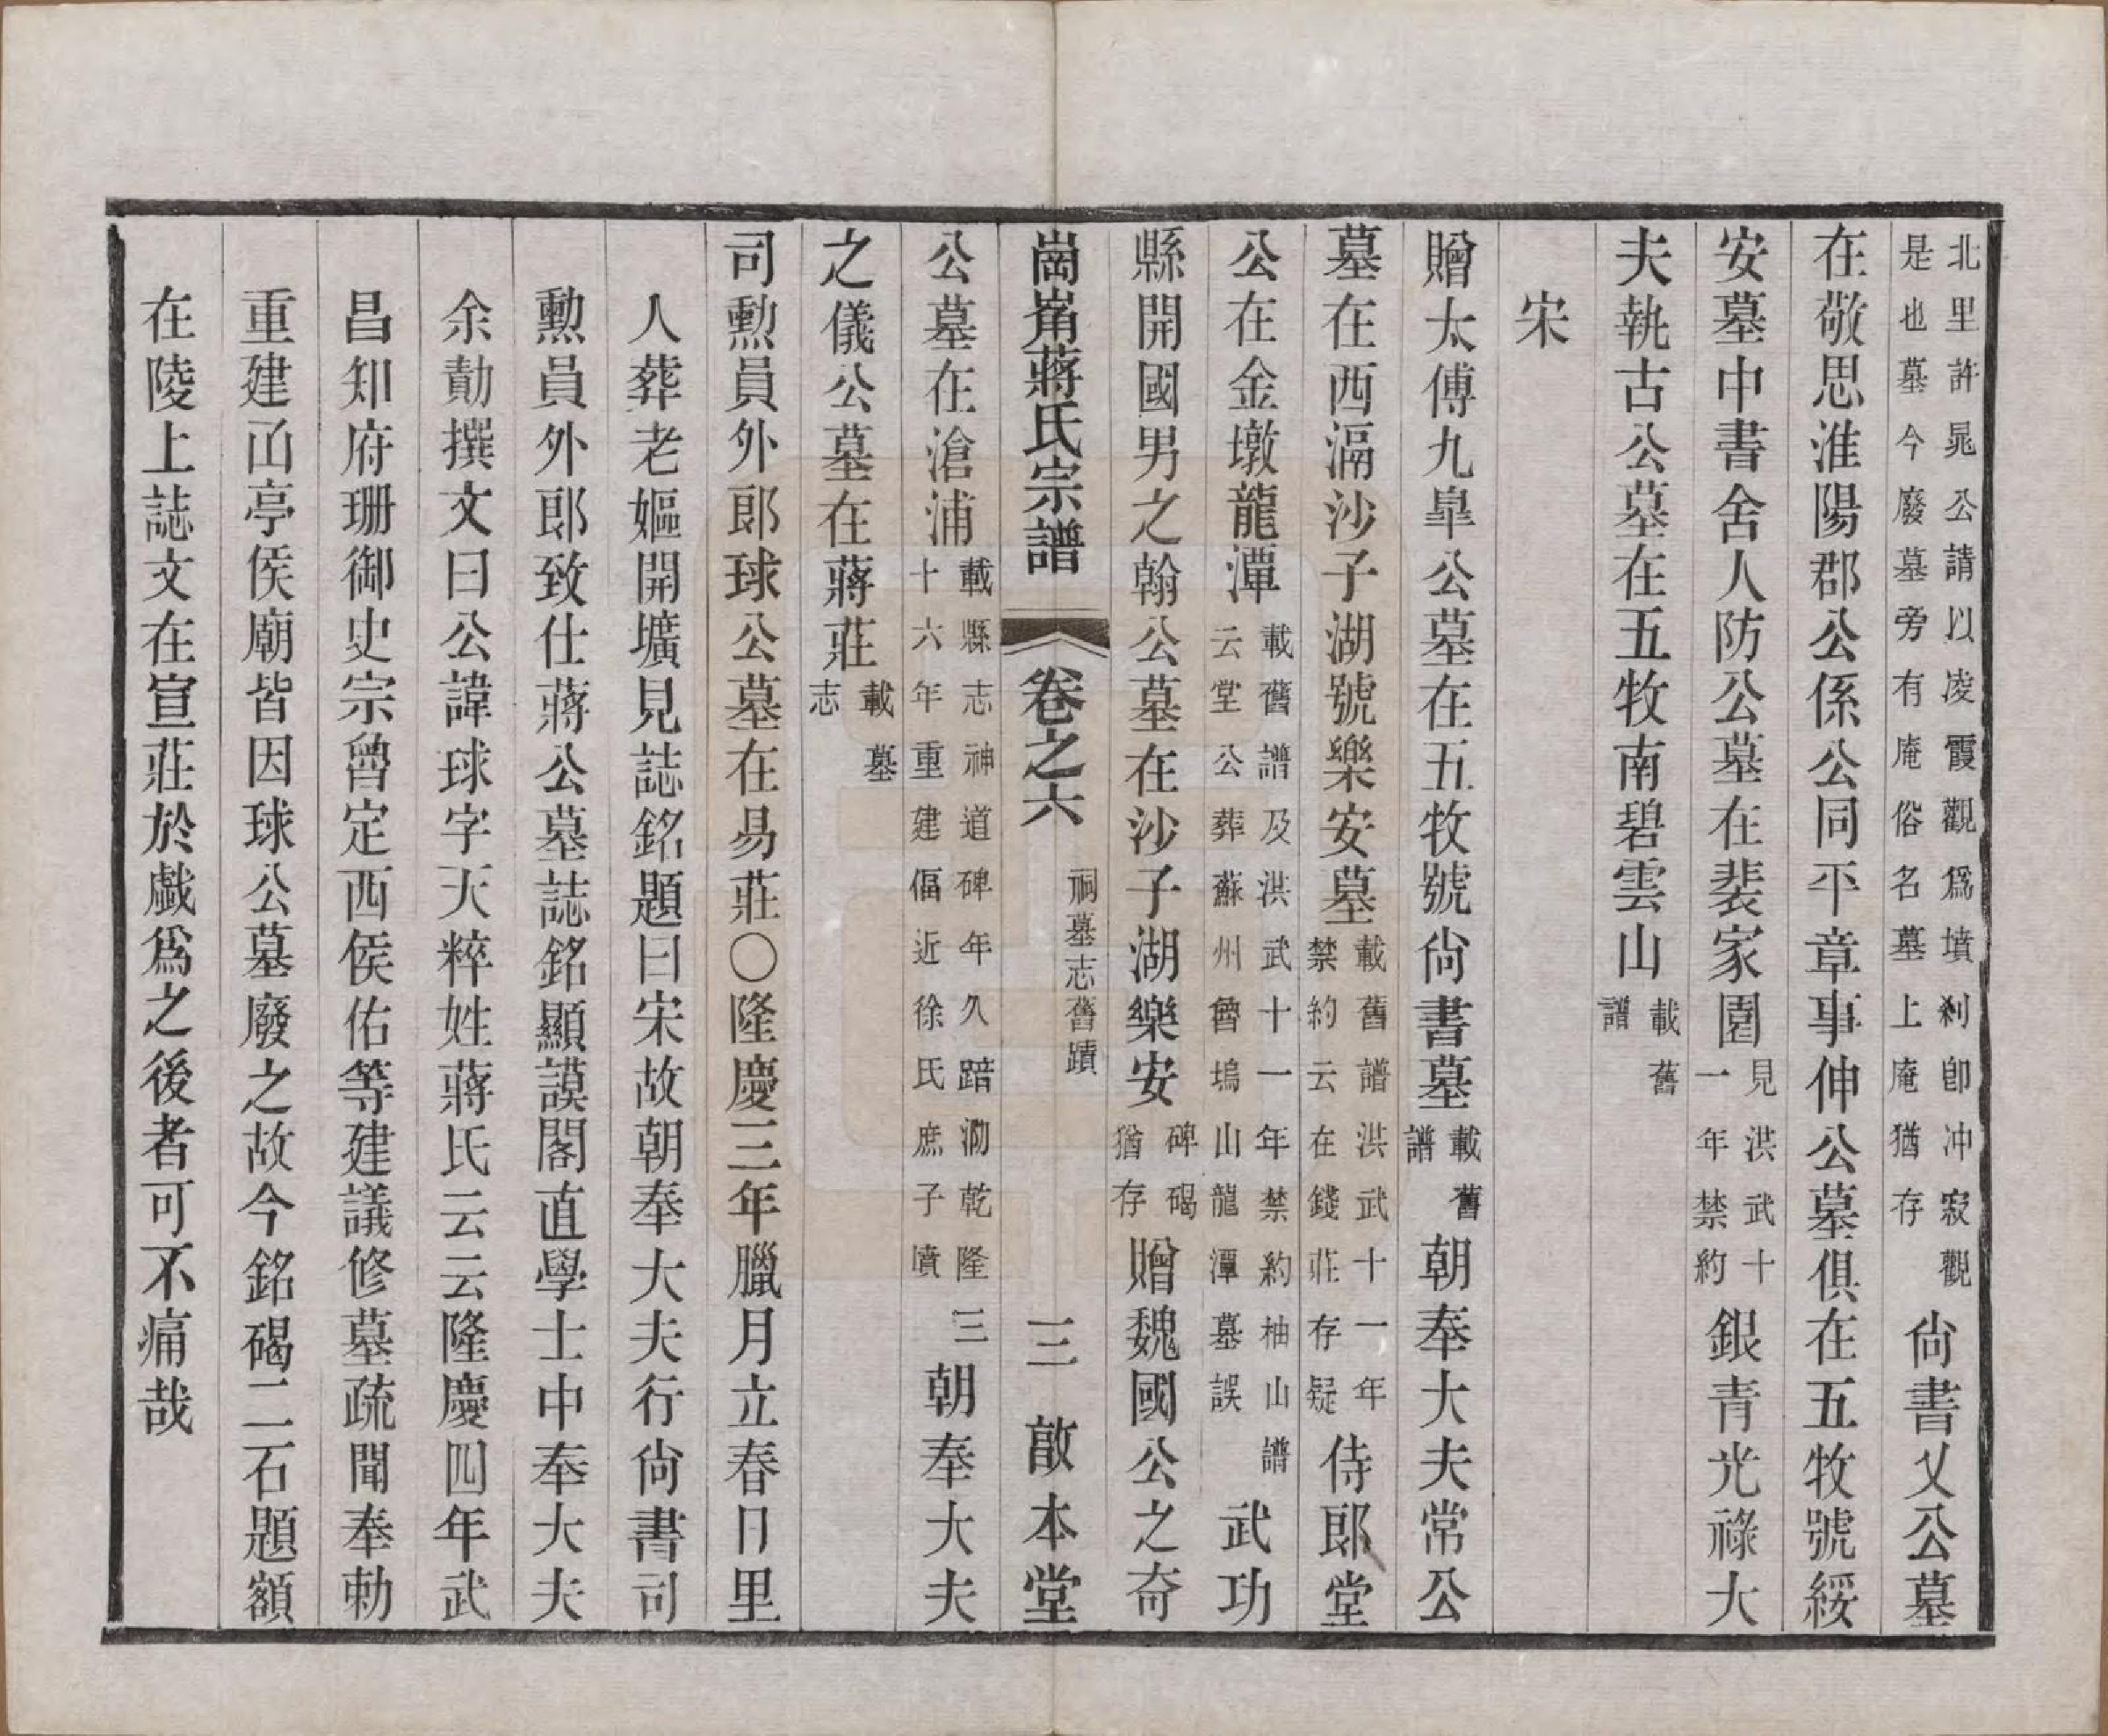 北里許晁公請以凌霞觀爲墳剎卽冲寂觀
是也墓今廢墓旁有庵俗名墓上庵猶存
尙書乂公墓
在敬思淮陽郡公係公同平章事伸公墓俱在五牧號綏
安墓中書舍人防公墓在裴家園
見洪武十
一年禁約
銀青光祿大
夫執古公墓在五牧南碧雲山
載舊
譜
宋
贈太傅九臯公墓在五牧號尙書墓
載舊
譜
朝奉大夫常公
墓在西滆沙子湖號樂安墓
載舊譜洪武十一年
禁約云在錢莊存疑
侍郎堂
公在金墩龍潭
載舊譜及洪武十一年禁約柚山譜
云堂公葬蘇州魯塢山龍潭墓誤
武功
縣開國男之翰公墓在沙子湖樂安
碑碣
猶存
贈魏國公之奇
崗角蔣氏宗譜
卷之六
祠墓志舊蹟
三
敢本堂
公墓在滄浦
載縣志神道碑年久踣泐乾隆三
十六年重建偪近徐氏庶子墳
朝奉大夫
之儀公墓在蔣莊
載墓
志
司勲員外郎球公墓在易莊〇隆慶三年臘月立春日里
人葬老嫗開壙見誌銘題曰宋故朝奉大夫行尙書司
勲員外郎致仕蔣公墓誌銘顯謨閣直學士中奉大夫
余勣撰文曰公諱球字天粹姓蔣氏云云隆慶四年武
昌知府珊御史宗曾定西侯佑等建議修墓疏聞奉勅
重建函亭侯廟皆因球公墓廢之故今銘碣二石題額
在陵上誌文在宣莊於戯爲之後者可不痛哉